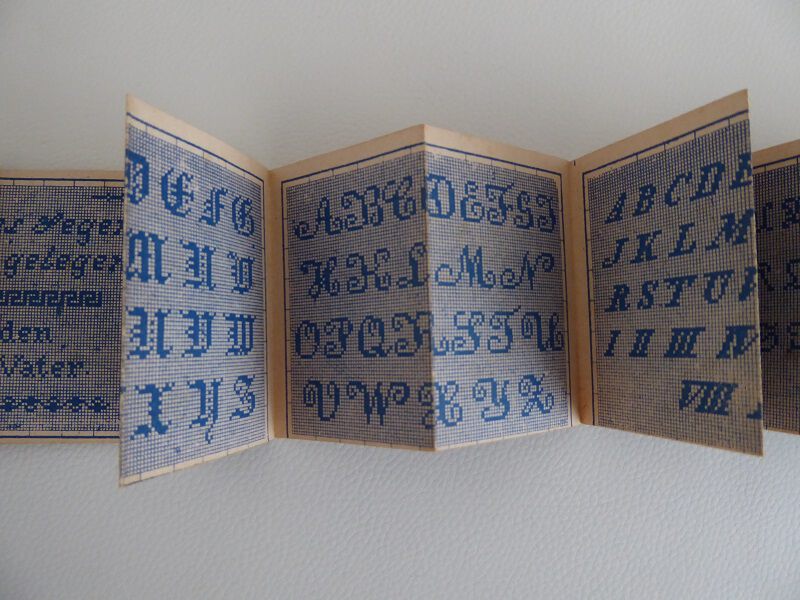 gelegen
den,
Vater.
D E F G
M N O
U V W
X Y Z
A B C D E F G J
H K L M N
O P Q R S T U
V W X Y Z
A B C D E
J K L M
R S T U V
I II III IV
VIII